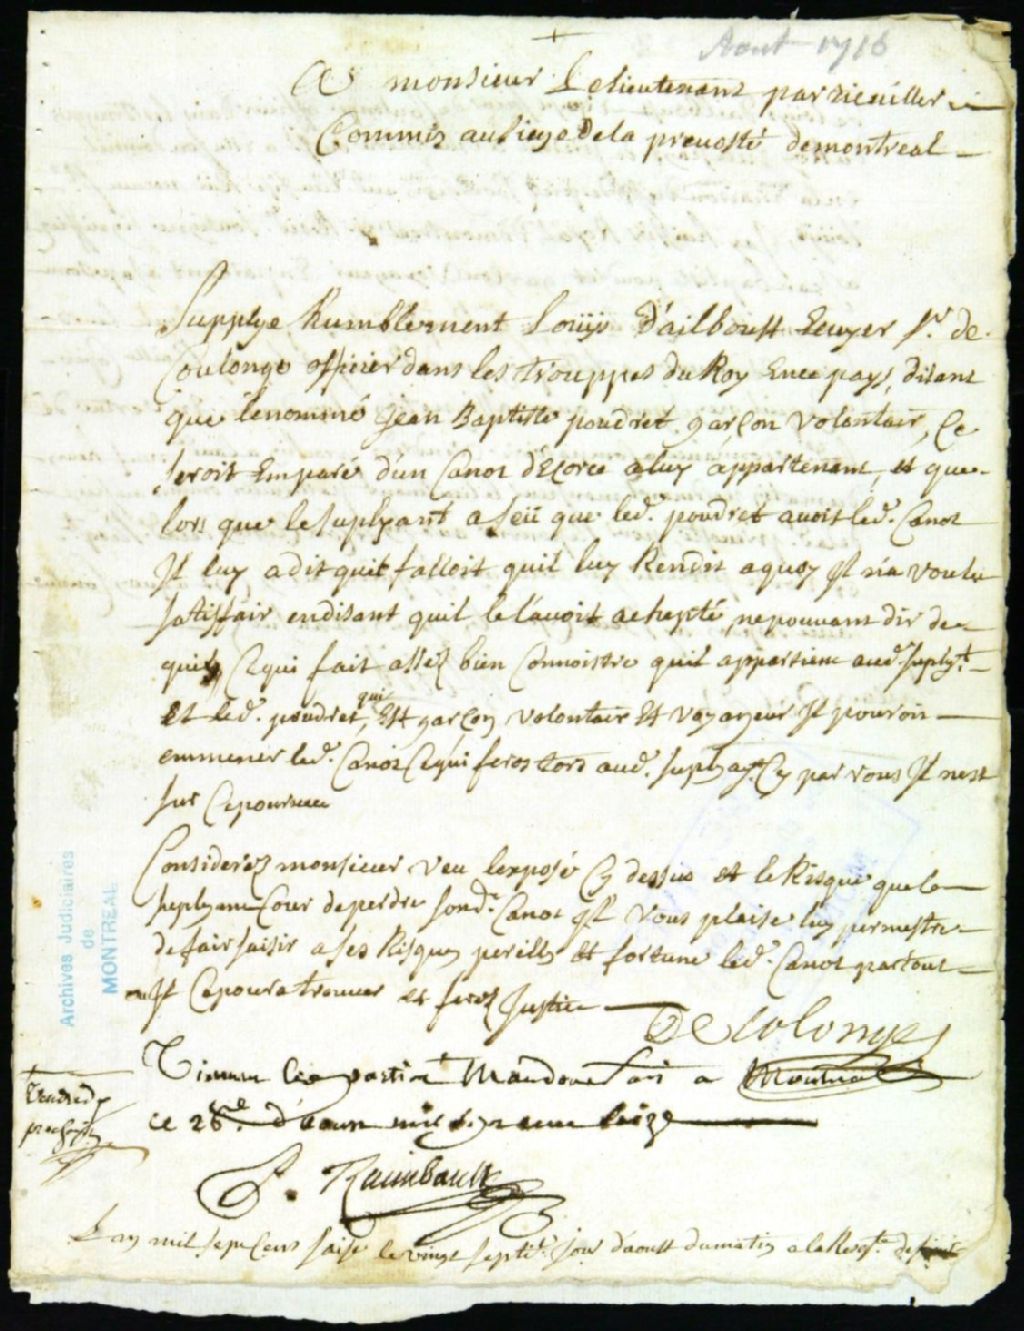 Aout 1716
A monsieur Le lieutenant particuillier
Commis au siege de la prevosté de montreal
Supplye humblement Loüis D'ailboust Ecuyer Sr. de
Coulonge officier dans les trouppes du Roy En ce pays, disant
que le nommé Jean Baptiste poudret garçon volontair, Ce
seroit Emparé d'un Canot d'Ecorce a luy appartenant, et que
lors que le suplyant a seü que led. poudret avoit led. Canot
Il luy a dit quil falloit quil luy Rendit a quoy Il n'a voulu
satisfair en disant quil le l'avoit achepté, ne pouvant dir de
qui, Ce qui fait assez bien Connoistre quil appartient aud. Suplyt.
Et led. poudret, qui Est garçon volontair Et voyageur Il pouroit
emmener led. Canot Ce qui feroit tord aud. suplyant. Cy par vous Il nest
sur Ce pourveu
Considerez monsieur veu lexposé Cy dessus et le Risque que le
suplyant Cour de perdre sond. Canot Il Vous plaise luy permettre
de fair saisir a ses Risques perills et fortune led. Canot partout
ou Il Ce poura trouver et ferez Justice
De Colonge
Viennent les parties Mandons fait a Montreal
ce 26me d'aoust mil sept cent seize
Vendredy
prochain
P. Raimbault
L'an mil sept Cens saise le vingt septie. Jour d'aoust du matin a la Requte. de
Archives Judiciaires
de
MONTREAL